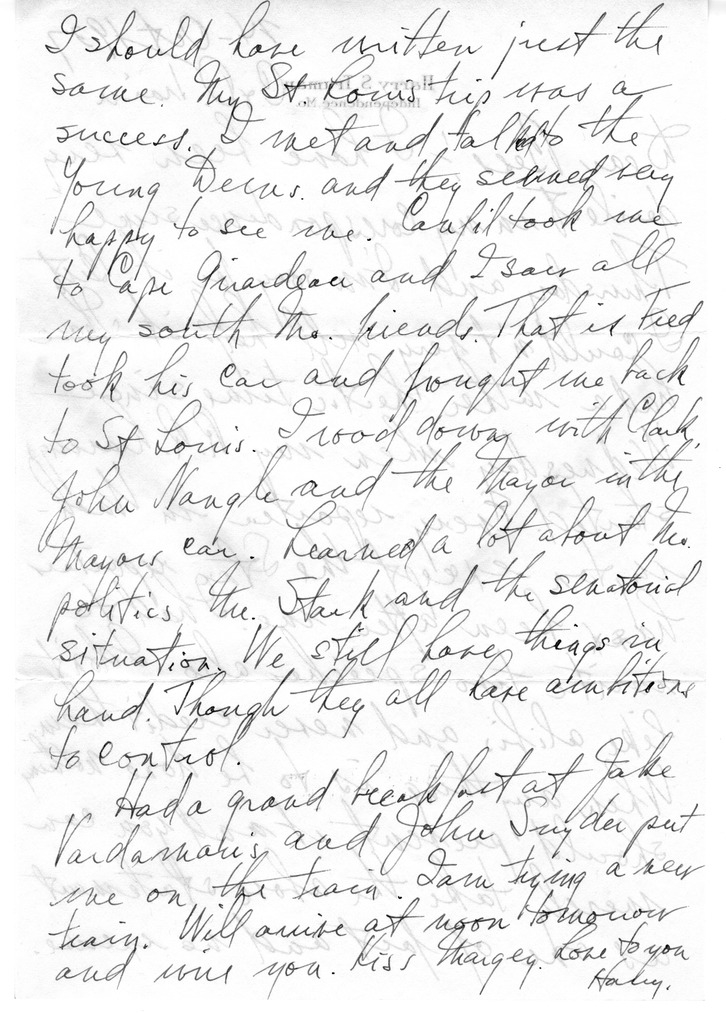 I should have written just the
same. My St. Louis trip was a
success. I met and talk to the
Young Dems. and they seemed very
happy to see me. Canfil took me
to Cape Girardeau and I saw all
my south Mo. friends. That is Fred
took his car and brought me back
to St Louis. I rood down with Clark,
John Nangle and the Mayor in the
Mayors car. Learned a lot about Mo.
politics, Mr. Stark and the senatorial
situation. We still have things in
hand. Though they all have ambitions
to control.
Had a grand breakfast at Jake
Vardaman's and John Snyder put
me on the train. I am trying a new
train. Will arrive at noon tomorrow
and wire you. Kiss Margey. Love to you
Harry.
Harry S. Truman
Independence, Mo.